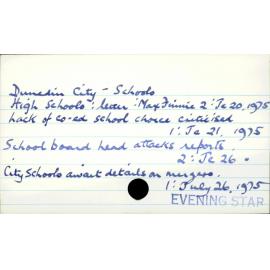 Dunedin City - Schools
High Schools: letter: Max Finnie 2: Je 20, 1975
Lack of co-ed school choice criticised
1: Je 21, 1975
School board head attacks reports.
2: Je 26.
City Schools await details on mergers.
1: July 26, 1975
EVENING STAR